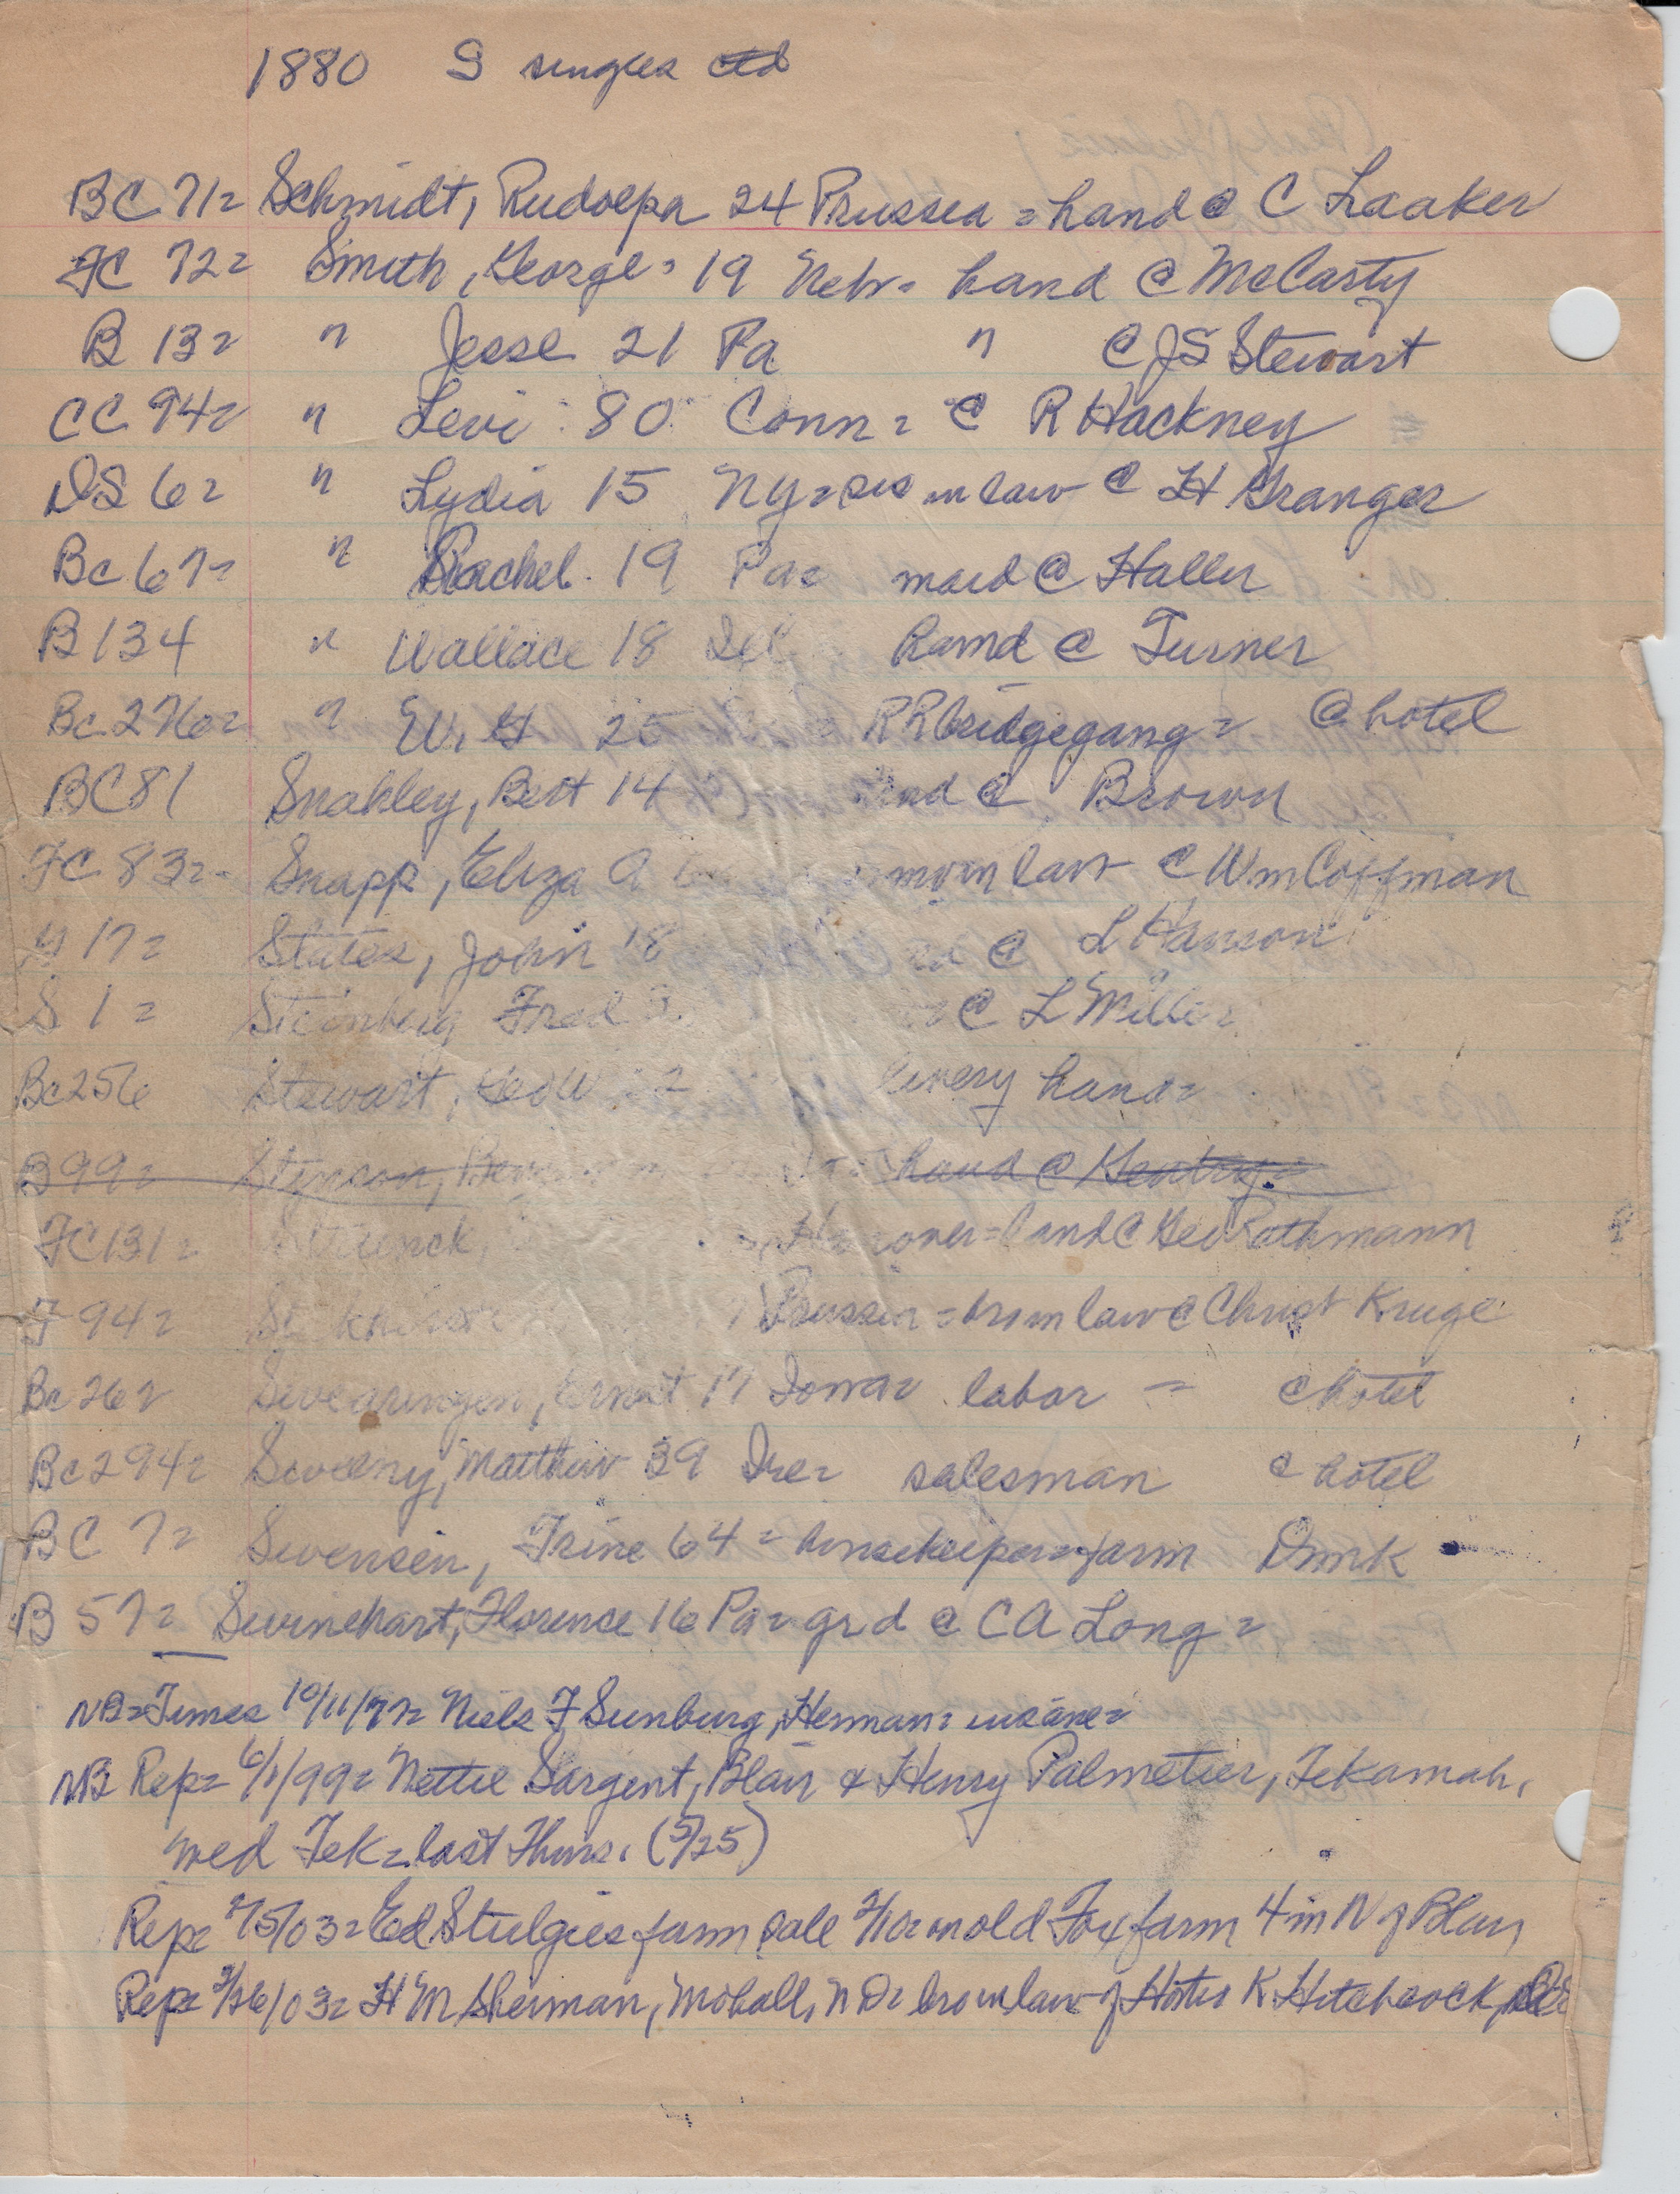 1880 S singles ctd
BC 71= Schmidt, Rudolph 24 Prussia = hand @ C Laaker
FC 72= Smith, George = 19 Nebr = hand @ McCarty
B 13= " Jesse 21 Pa " @ JS Stewart
CC 94= " Levi : 80 Conn = @ R Hackney
DS 6= " Lydia 15 NY = sis in law @ H Granger
Bc 67= " Rachel 19 Pa = maid @ Haller
B 134 " Wallace 18 @ Turner
Bc 276= " W. H 25 = RR bridgegang = @ hotel
BC 81 Snahley, Bert 14 @ Brown
FC 83= Snapp, Eliza in law @ Wm Coffman
17= States, John 18 @ L Hanson
S 1= Steinberg Fred @ L Miller
Bc 256 Stewart, Geo W livery hand =
B 99= Stinson, hand @ Gentry =
FC 131= Strenck, Hanover = hand @ Geo Rathmann
F 94= Prussia = bro in law @ Christ Kruge
Bc 262 Swearingen, Ernest 17 Iowa = labor = @ hotel
Bc 294= Sweeny, Matthew 39 Ire = salesman @ hotel
BC 7= Swensen, Trine 64 = housekeeper = farm Dnmk
B 57= Swinehart, Florence 16 Pa = gr d @ CA Long =
NB = Times 10/11/77= Niels F Sunburg, Herman = insane =
NB Rep = 6/1/99= Nettie Sargent, Blair & Henry Palmetier, Tekamah,
wed Tek = last Thurs. (5/25)
Rep = 2/5/03= Ed Stulgies farm sale on old Fox farm 4 mi N of Blair
Rep = 2/26/03= H M Sherman, Mohall, N D = bro in law of K. Hitchcock,